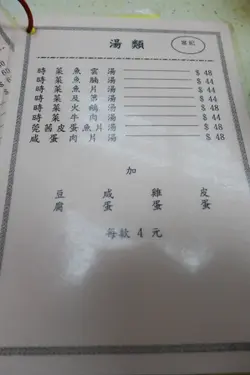 湯類
時菜魚雲湯 $48
時菜魚腩湯 $44
時菜魚片湯 $44
時菜及第湯 $48
時菜火鴨湯 $44
時菜牛肉湯 $44
莞茜皮蛋魚片湯 $48
咸蛋肉片湯 $48
加
豆腐 咸蛋 雞蛋 皮蛋
每款4元